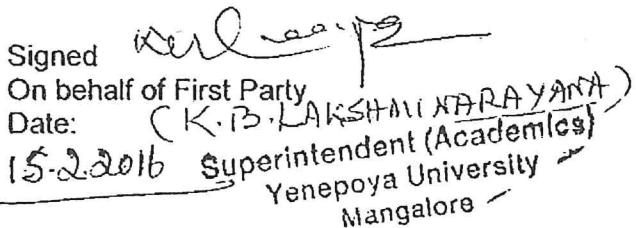 Signed
On behalf of First Party
Date: (K.B.LAKSHMINARAYANA)
15.2.2016 Superintendent (Academics)
Yenepoya University
Mangalore